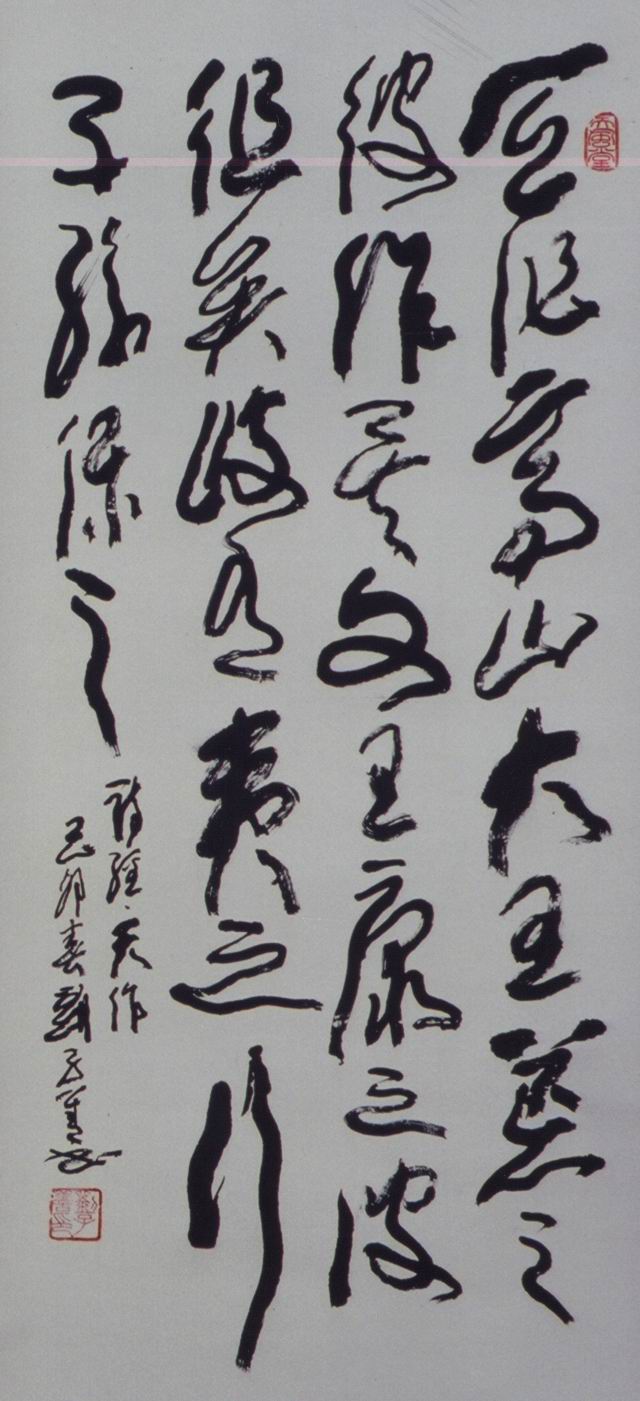 天作高山大王荒之
彼作矣文王康之彼
徂矣岐有夷之行
子孫保之
詩經·天作
己卯春